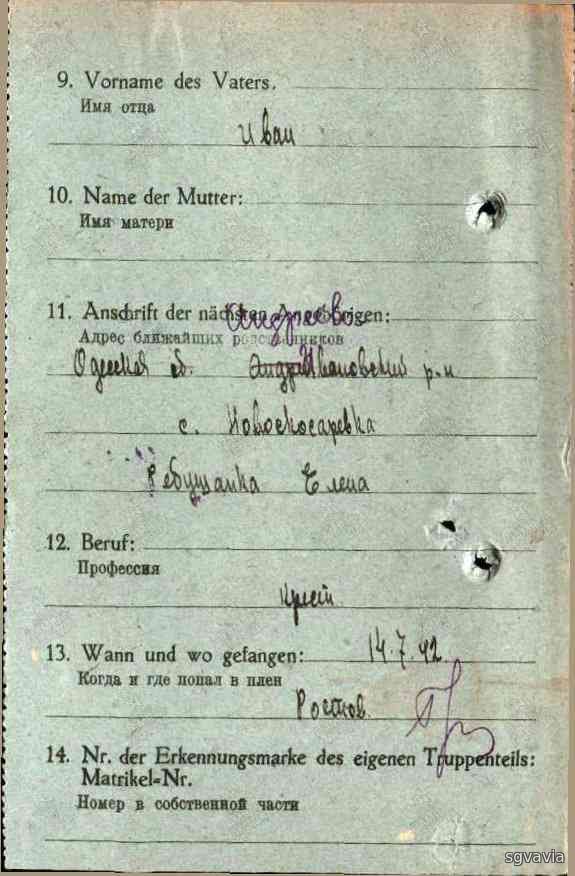 9. Vorname des Vaters.
Имя отца
Иван
10. Name der Mutter:
Имя матери
11. Anschrift der nächsten Angehörigen:
Андреево
Адрес ближайших родственников
Одесская об. Ивановский р-н
с. Новоскосаревка
Рябушанка Елена
12. Beruf:
Профессия
крест.
13. Wann und wo gefangen: 14.7.42
Когда и где попал в плен
Ростов.
14. Nr. der Erkennungsmarke des eigenen Truppenteils:
Matrikel-Nr.
Номер в собственной части
sgvavia